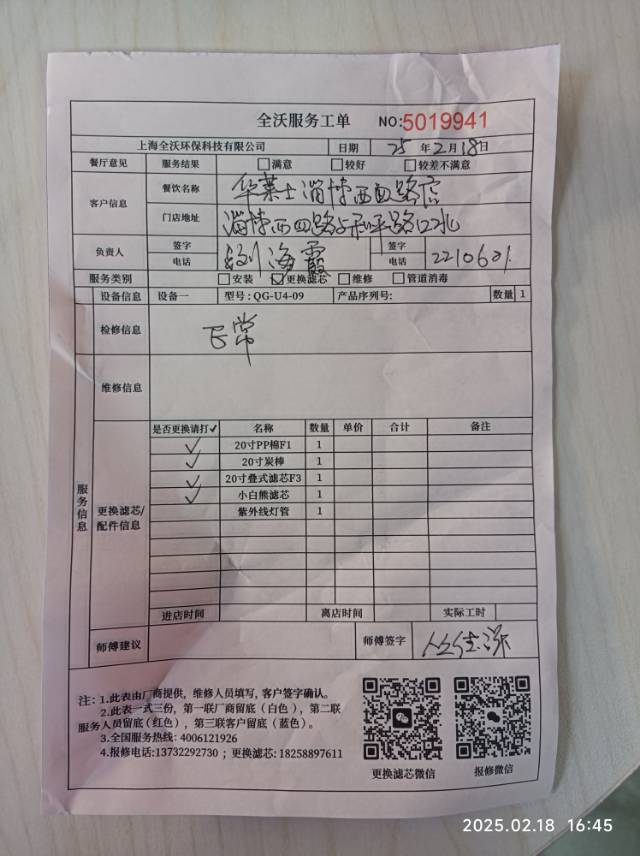 全沃服务工单 NO:5019941
上海全沃环保科技有限公司 日期 25 年 2 月 18 日
餐厅意见 服务结果 □满意 □较好 □较差不满意
客户信息 餐饮名称 华莱士淄博西四路店
门店地址 淄博西四路与和平路口北
负责人 签字 刘海霞 签字
电话 电话 2210601
服务类别 □安装 ☑更换滤芯 □维修 □管道消毒
设备信息 设备一 型号:QG-U4-09 产品序列号: 数量 1
检修信息 正常
维修信息
服务信息
更换滤芯/配件信息
是否更换请打✓ 名称 数量 单价 合计 备注
✓ 20寸PP棉F1 1
✓ 20寸炭棒 1
✓ 20寸叠式滤芯F3 1
✓ 小白熊滤芯 1
紫外线灯管 1
进店时间 离店时间 实际工时
师傅建议 师傅签字
注:1.此表由厂商提供,维修人员填写,客户签字确认。
2.此表一式三份,第一联厂商留底(白色),第二联
服务人员留底(红色),第三联客户留底(蓝色)。
3.全国服务热线:4006121926
4.报修电话:13732292730;更换滤芯:18258897611
更换滤芯微信 报修微信
2025.02.18 16:45